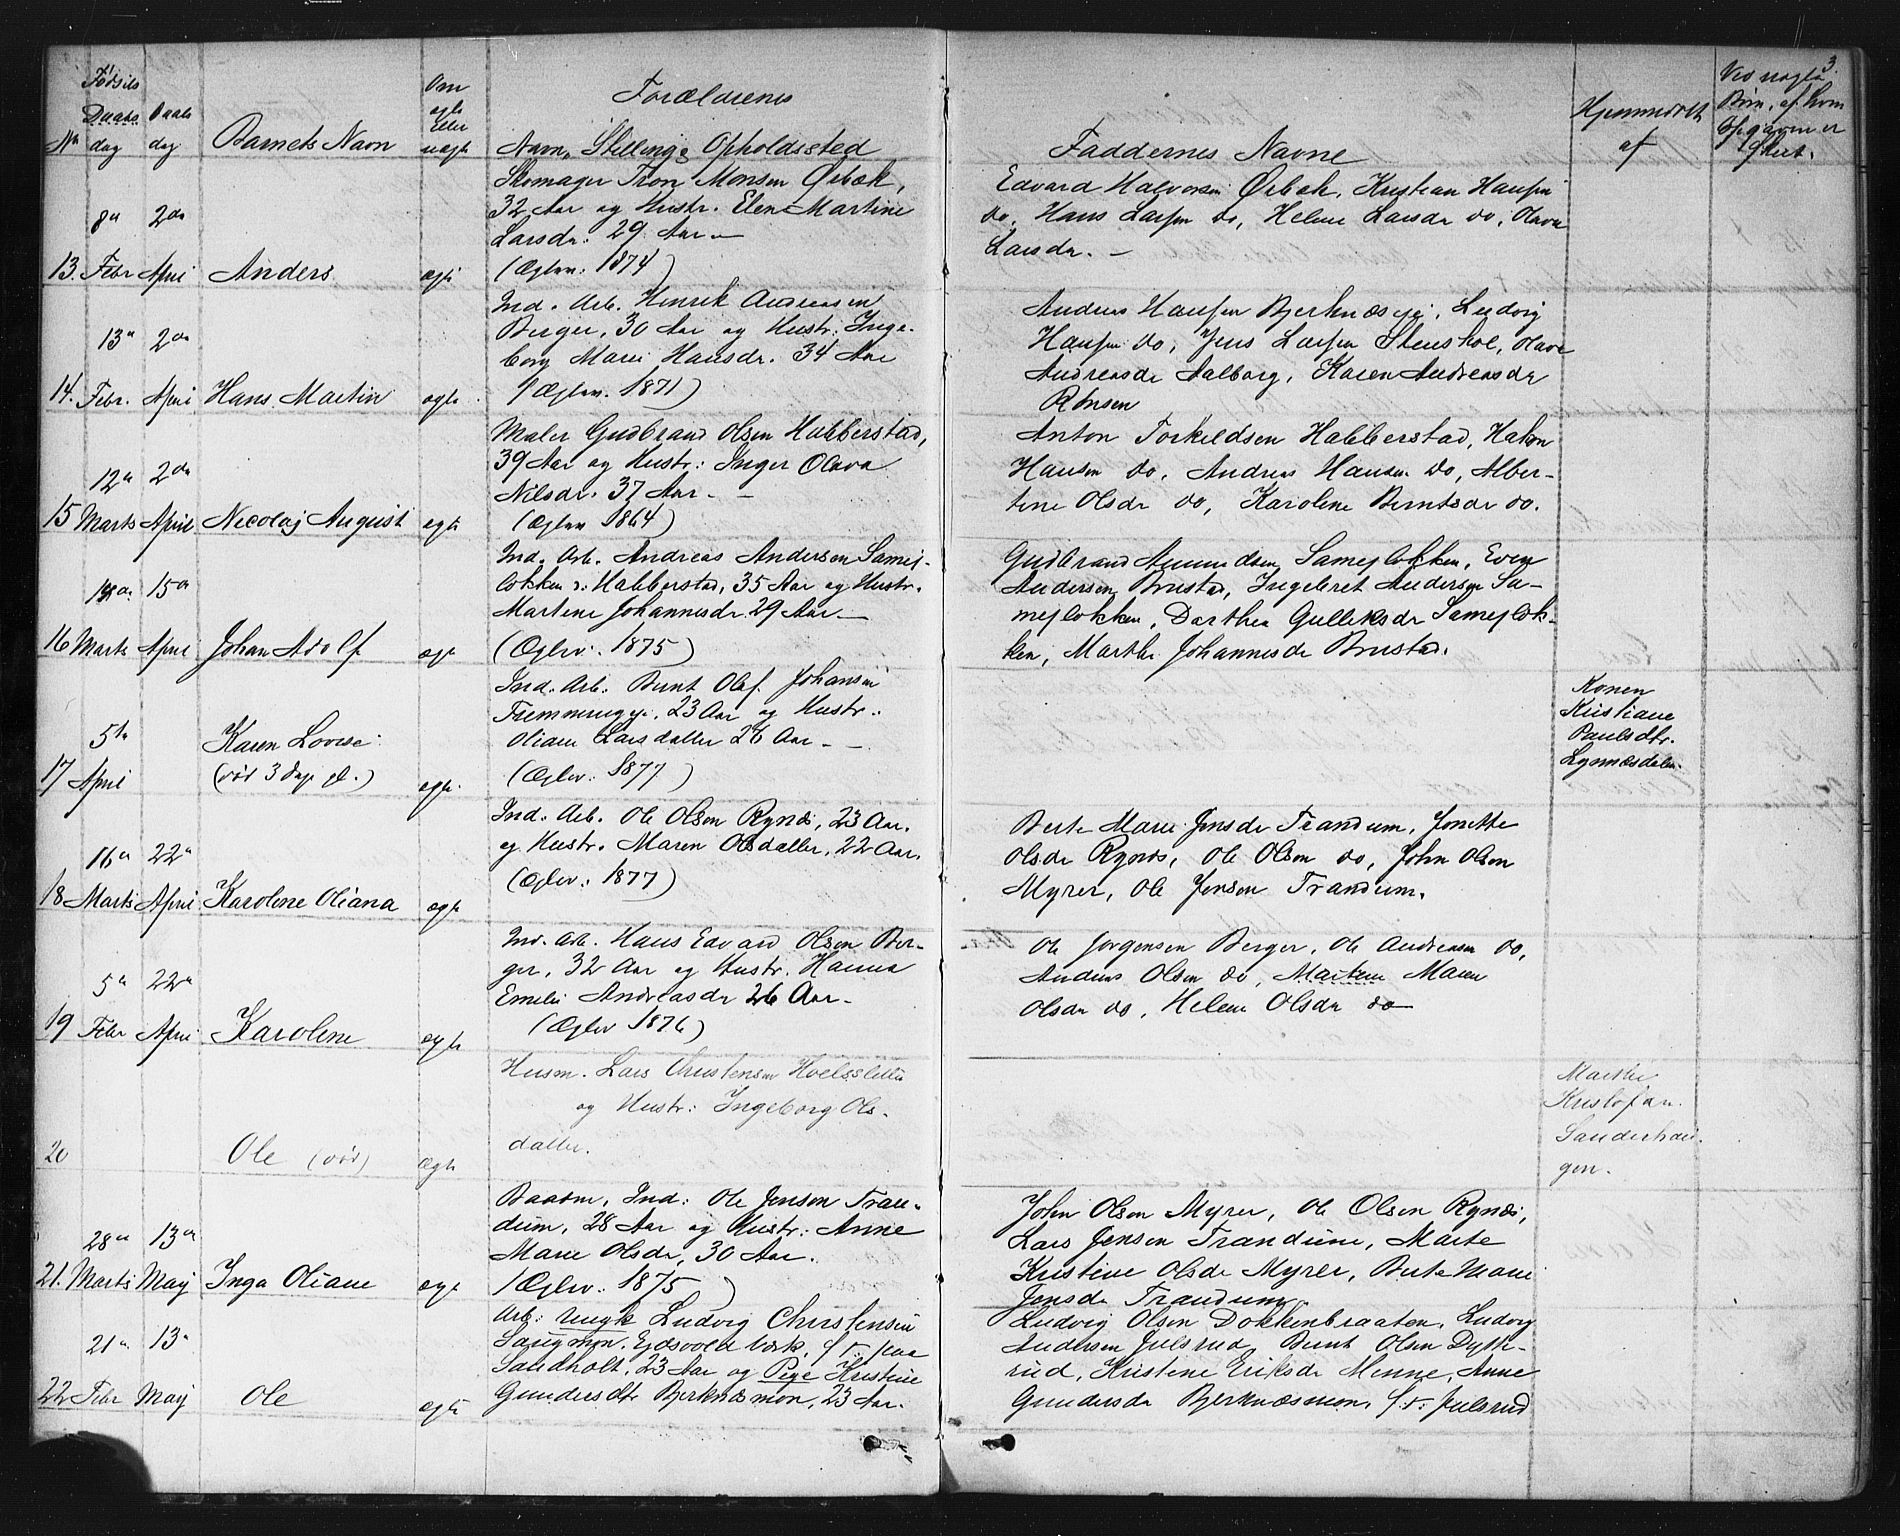 3
No
Fødsels
Daabs
dag
Daabs
dag
Barnets Navn
Om
ægte
Eller
uægte
Forældrenes
Navn, Stilling, Opholdssted
Faddernes Navne
Hjemmedøbt
af
Ved uægte
Børn, af hvem
Opgaven er
skeet.
13.
8de
Febr
2den
April
Anders
ægte
Skomager Tron Monsen Ørbæk,
32 Aar og Hustr. Elen Martine
Larsdr. 29 Aar. —
(Ægtev. 1874)
Edvard Halvorsen Ørbek, Kristian Hansen
do, Hans Larsen do, Helene Larsdr do, Olava
Larsdr. —
14.
13de
Febr.
2den
April
Hans Martin
ægte
Ind. Arb. Henrik Andreasen
Berger, 30 Aar og Hustr. Inge-
borg Marie Hansdr. 34 Aar
(Ægtev. 1871)
Andreas Hansen Bjerknæseje, Ludvig
Hansen do, Jens Larsen Stenshol, Olava
Andreasdr Aalborg, Karen Andreasdr
Rønsen
15
12te
Marts
2den
April
Nicolaj August
ægte
Maler Gudbrand Olsen Habberstad,
39 Aar og Hustr: Inger Olava
Nilsdr. 37 Aar. —
(Ægtev 1864)
Anton Torkildsen Habberstad, Hakon
Hansen do, Andreas Hansen do, Alber-
tine Olsdr do, Karoline Berntsdr do.
16
Marts
15de
April
Johan Adolf
ægte
Ind. Arb. Andreas Andersen Samej-
løkken v: Habberstad, 35 Aar og Hustr.
Martine Johannesdr 29 Aar —
(Ægtev. 1875)
Gudbrand Amundsen Samejløkken, Even
Andersen Brustad, Ingebret Andersen Sa-
mejløkken, Dorthea Gulliksdr Samejløk-
ken, Marthe Johannesdr Brustad.
17
5te
April
Karen Lovise
(død 3 Dage gl.)
ægte
Ind. Arb. Bernt Olaf Johansen
23 Aar og Hustr.
Oliane Larsdatter 26 Aar —
(Ægtev: 1877)
Konen
Kristiane
Paulsdtr.
Lynnæsdalen.
18
16de
Marts
22de
April
Karoline Oliana
ægte
Ind. Arb. Ole Olsen Rynæs, 23 Aar.
og Hustr. Maren Olsdatter, 22 Aar.
(Ægtev: 1877)
Berte Marie Jensdr Trandum, Jonette
Olsdr Rynæs, Ole Olsen do, John Olsen
Myrer, Ole Jensen Trandum.
19
5te
Febr
22de
April
Karoline
ægte
Ind. Arb. Hans Edvard Olsen Ber-
ger, 32 Aar og Hustr. Hanna
Emelie Andreasdr 26 Aar.
(Ægtev 1876)
Ole Jørgensen Berger, Ole Andreasen do,
Anders Olsen do, Martine Maren
Olsdr do, Helene Olsdr do
20
Ole (død)
Ægte
Husm. Lars Christensen Hoelsslette
og Hustr: Ingeborg Ols-
datter.
Marthe
Kristofan.
Sanderhau-
gen.
21.
28de
Marts
13de
Maj
Inga Oliane
ægte
Baadm, Ind: Ole Jensen Tran-
dum, 28 Aar og Hustr: Anne
Marie Olsdr, 30 Aar.
(Ægtev: 1875)
John Olsen Myrer, Ole Olsen Rynæs,
Lars Jensen Trandum, Marte
Kristine Olsdr Myrer, Berte Marie
Jensdr Trandum
22
21de
Febr
13de
Maj
Ole
ægte
Arb: Ungk Ludvig Christensen
Eidsvold Værk, f. v. paa
Sandholt, 23 Aar og Pige Kristine
Gundersdtr Bjerknæsmon, 23 Aar.
Ludvig Olsen Dokkenbraaten, Ludvig
Andersen Julsrud, Bernt Olsen Dyst-
rud, Kristine Eriksdr Minne, Anne
Gundersdr Bjerknæsmon, f. v. Julsrud